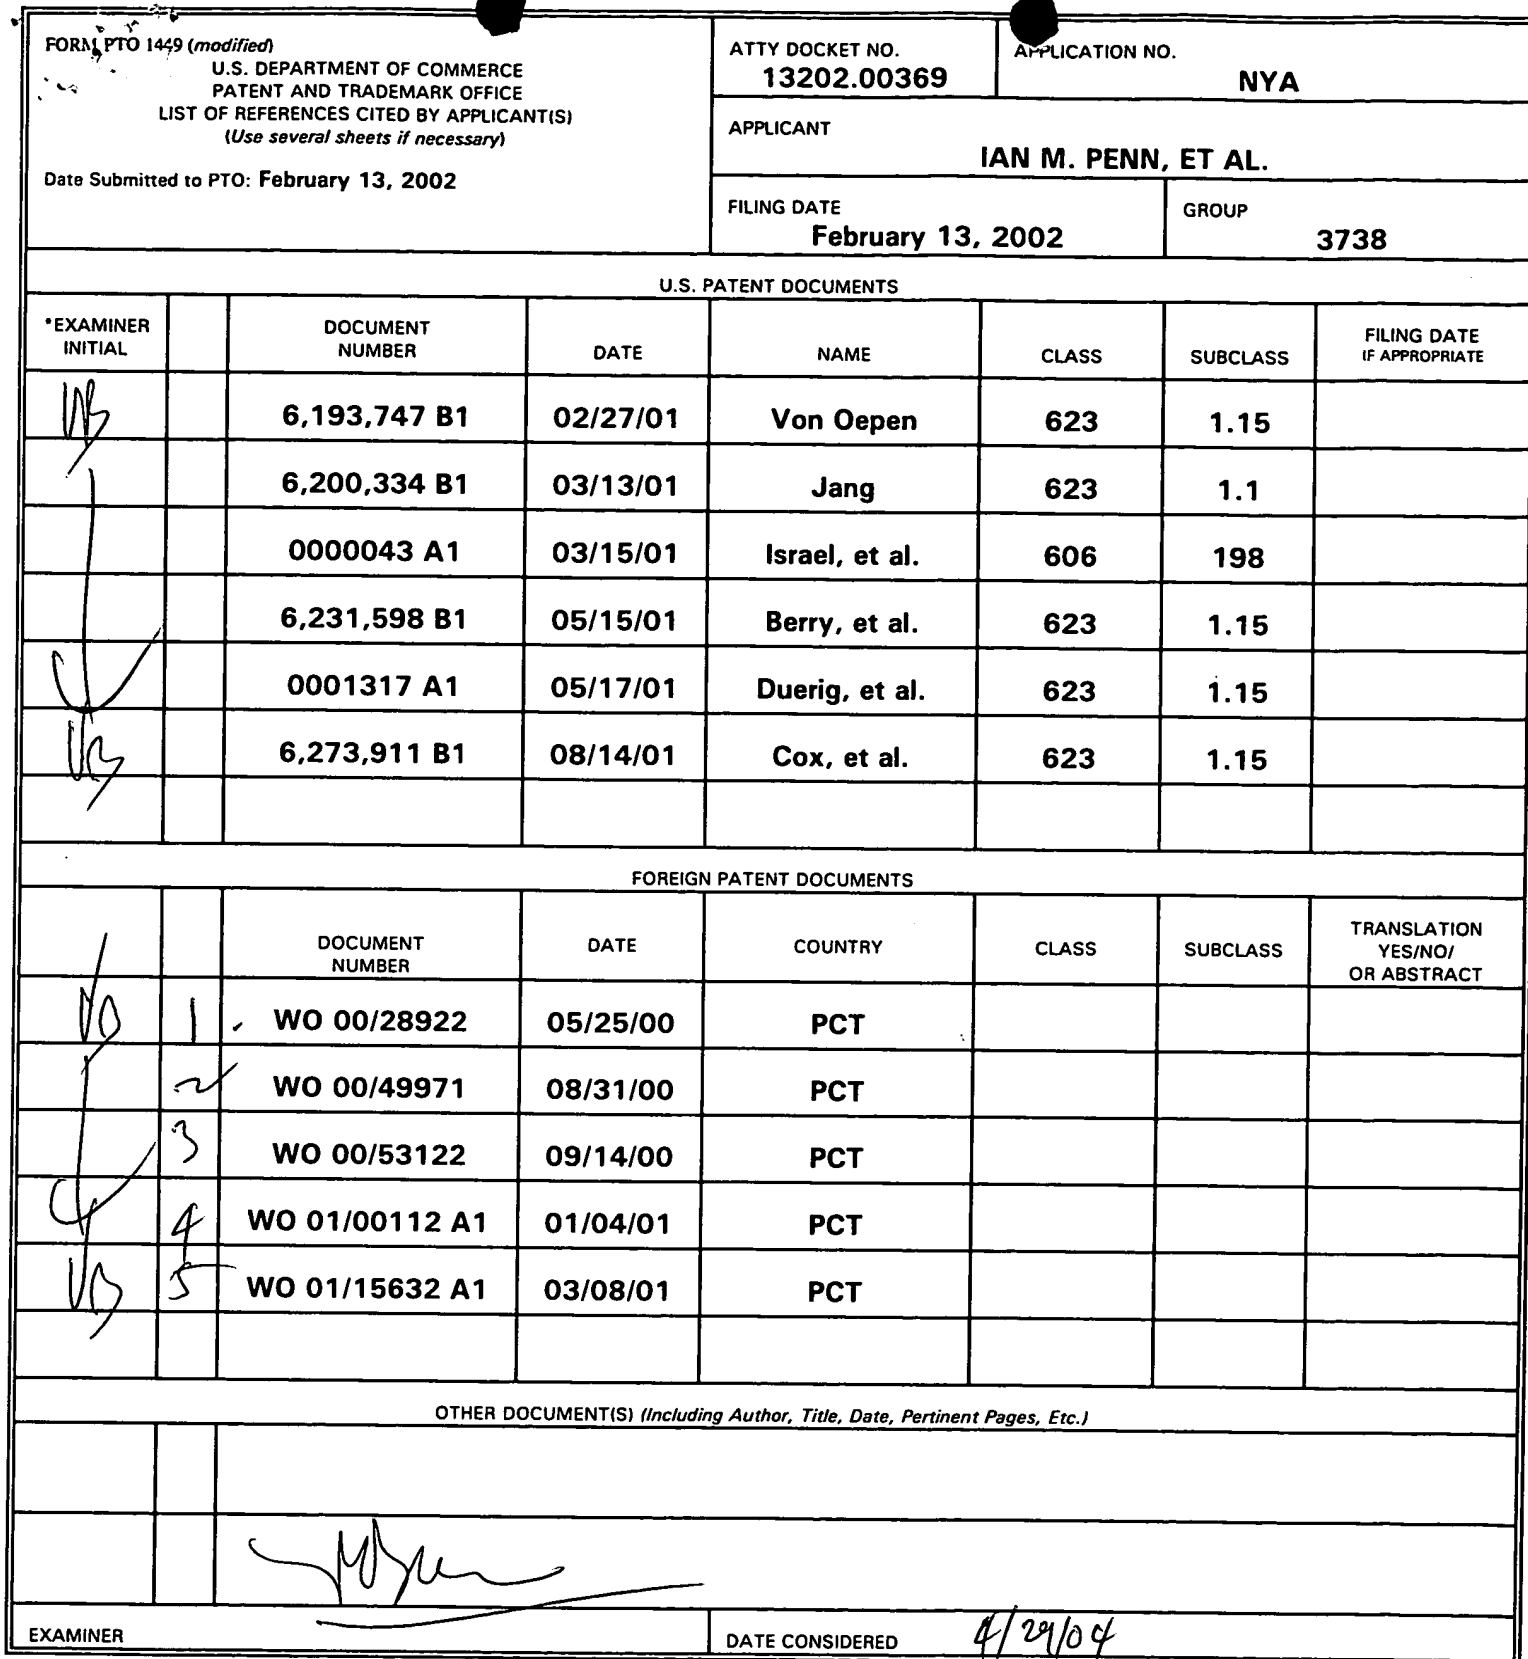 FORM PTO 1449 (modified)
U.S. DEPARTMENT OF COMMERCE
PATENT AND TRADEMARK OFFICE
LIST OF REFERENCES CITED BY APPLICANT(S)
(Use several sheets if necessary)
Date Submitted to PTO: February 13, 2002
ATTY DOCKET NO.
13202.00369
APPLICATION NO.
NYA
APPLICANT
IAN M. PENN, ET AL.
FILING DATE
February 13, 2002
GROUP
3738
U.S. PATENT DOCUMENTS
*EXAMINER INITIAL DOCUMENT NUMBER DATE NAME CLASS SUBCLASS FILING DATE IF APPROPRIATE
6,193,747 B1 02/27/01 Von Oepen 623 1.15
6,200,334 B1 03/13/01 Jang 623 1.1
0000043 A1 03/15/01 Israel, et al. 606 198
6,231,598 B1 05/15/01 Berry, et al. 623 1.15
0001317 A1 05/17/01 Duerig, et al. 623 1.15
6,273,911 B1 08/14/01 Cox, et al. 623 1.15
FOREIGN PATENT DOCUMENTS
DOCUMENT NUMBER DATE COUNTRY CLASS SUBCLASS TRANSLATION YES/NO/ OR ABSTRACT
1 WO 00/28922 05/25/00 PCT
2 WO 00/49971 08/31/00 PCT
3 WO 00/53122 09/14/00 PCT
4 WO 01/00112 A1 01/04/01 PCT
5 WO 01/15632 A1 03/08/01 PCT
OTHER DOCUMENT(S) (Including Author, Title, Date, Pertinent Pages, Etc.)
EXAMINER
DATE CONSIDERED 4/29/04